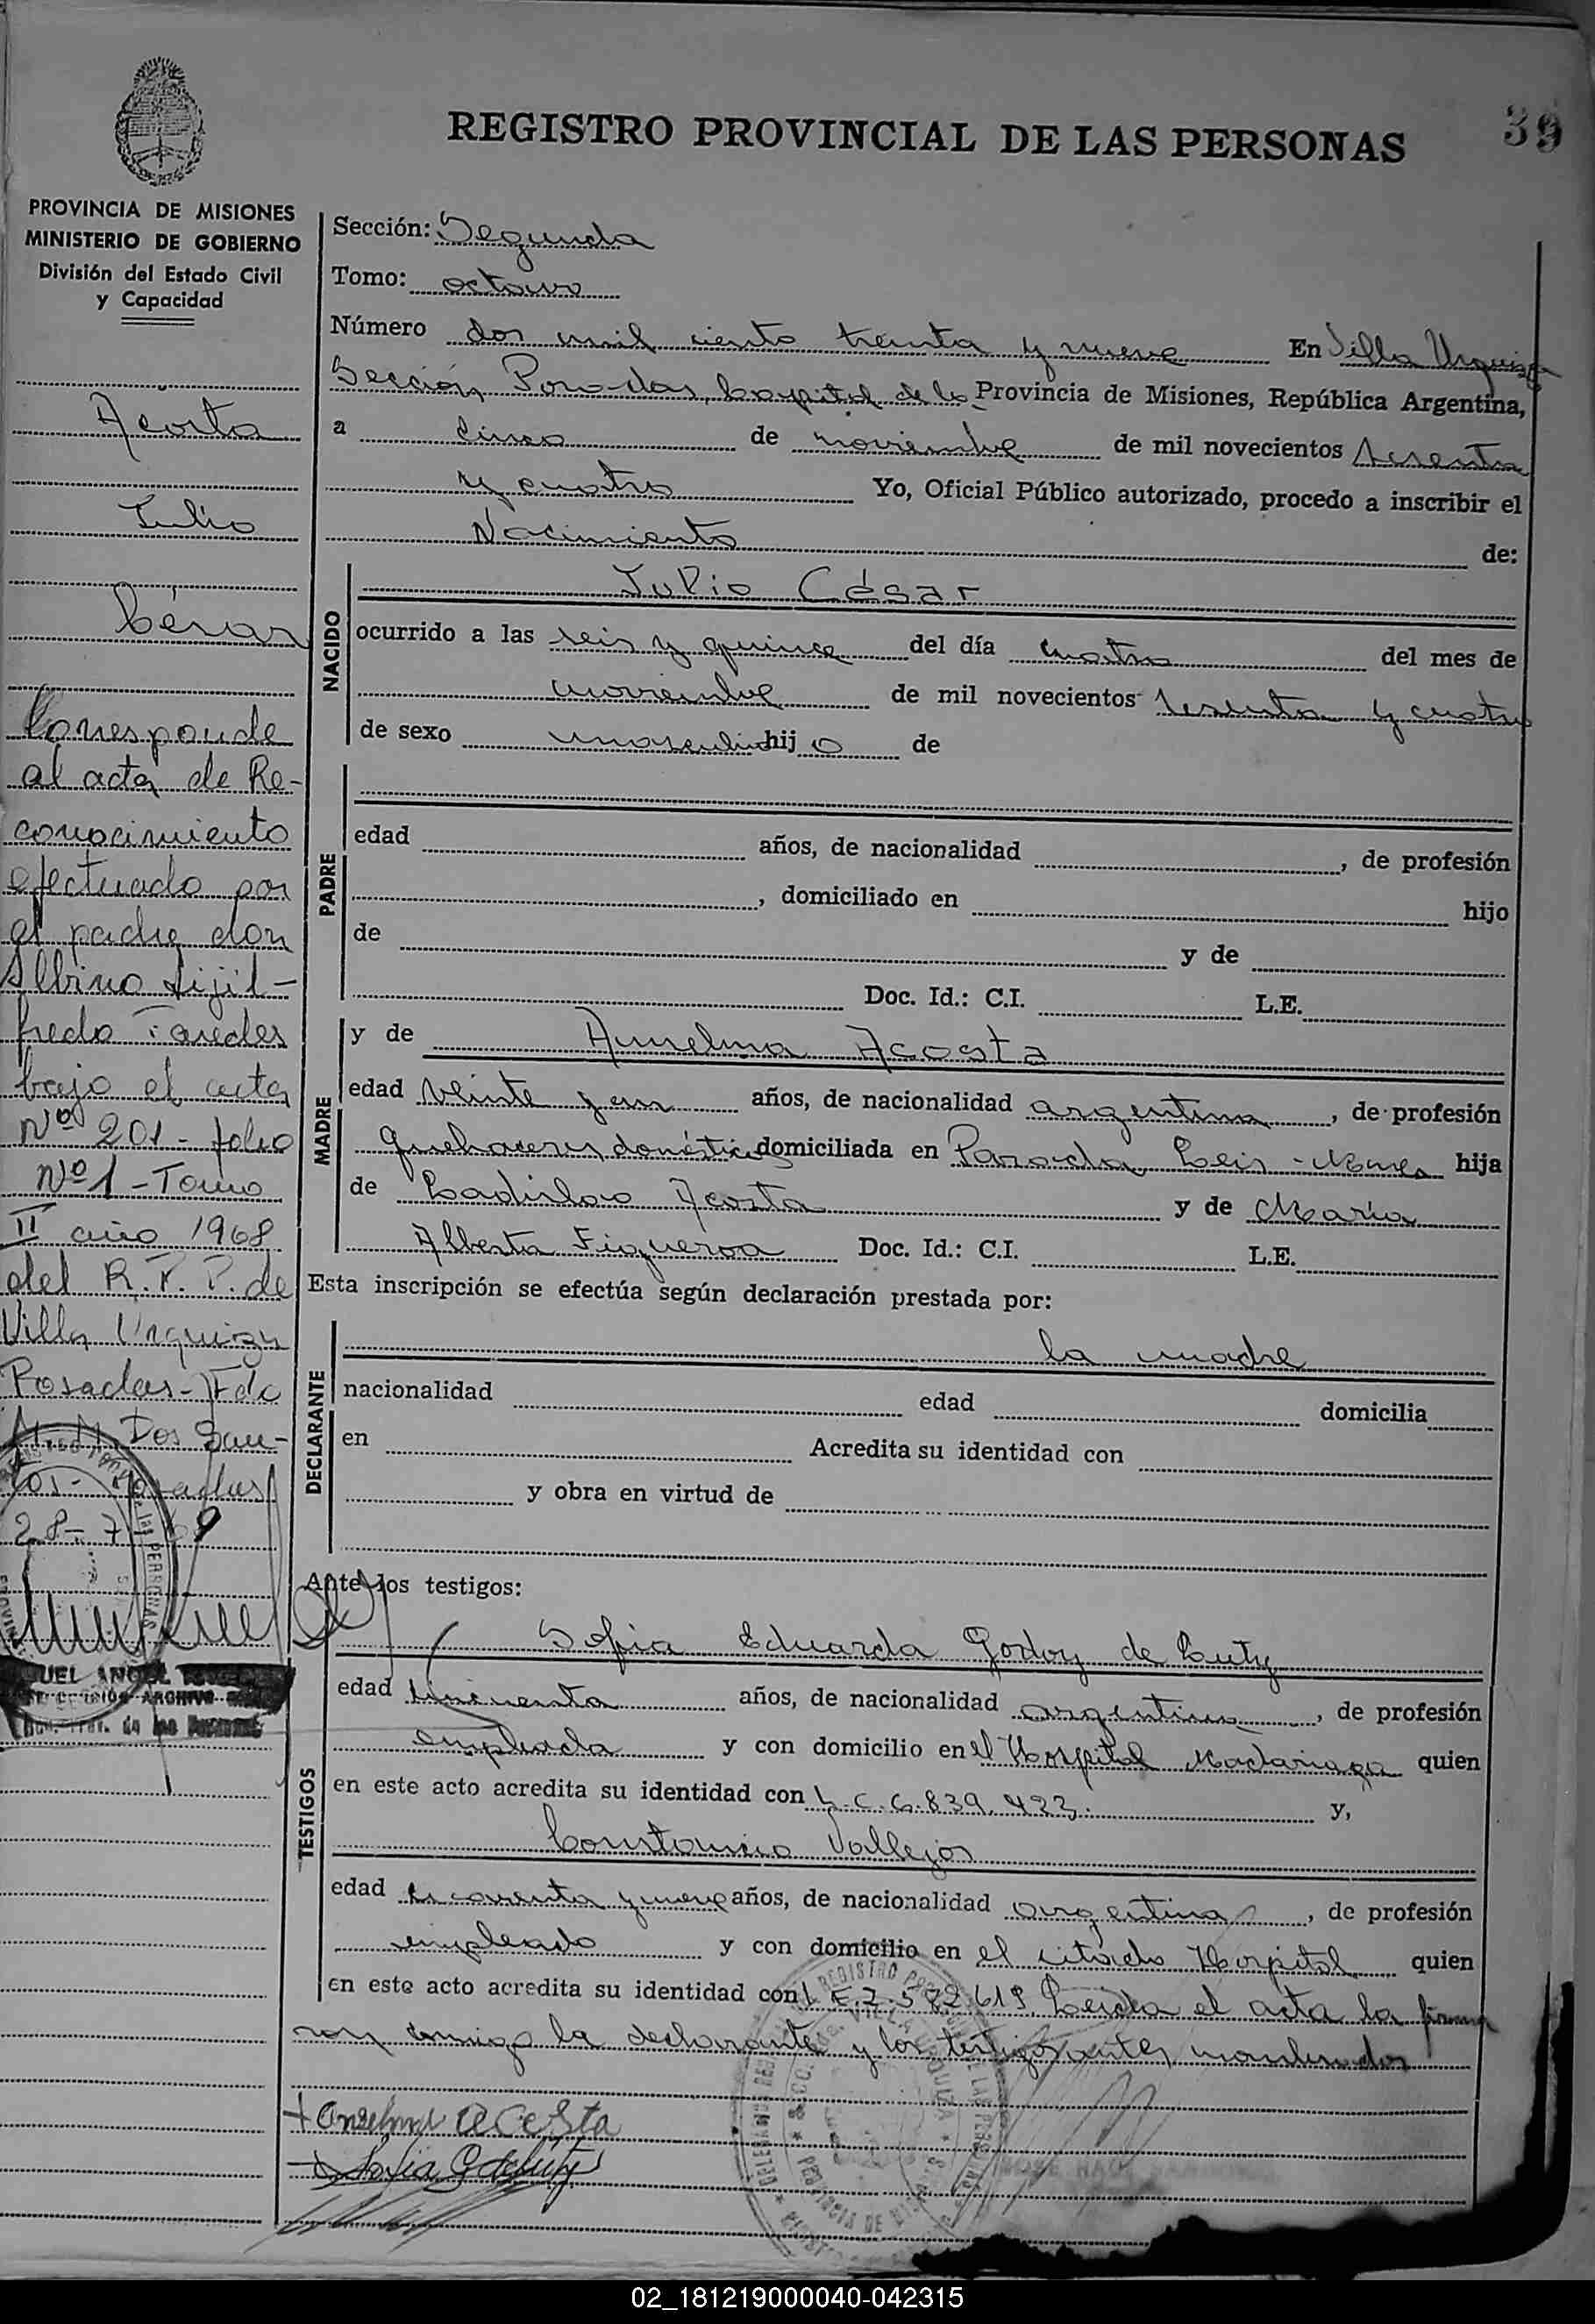 39
REGISTRO PROVINCIAL DE LAS PERSONAS
PROVINCIA DE MISIONES
MINISTERIO DE GOBIERNO
División del Estado Civil
y Capacidad
Acosta
Julio
César
Corresponde
al acta de Re-
conocimiento
efectuado por
el padre don
Albino Sijil-
fredo Paredes
bajo el acta
Nº 201 - folio
Nº 1 - Tomo
II año 1968
del R.P.P. de
Villa Urquiza
Posadas - Fdo
M. Dos San-
tos - Posadas
28-7-
Sección: Segunda
Tomo: octavo
Número dos mil ciento treinta y nueve En Villa Urquiza
Sección Posadas, Capital de la Provincia de Misiones, República Argentina,
a cinco de noviembre de mil novecientos sesenta
y cuatro Yo, Oficial Público autorizado, procedo a inscribir el
Nacimiento de:
NACIDO
Julio César
ocurrido a las seis y quince del día cuatro del mes de
noviembre de mil novecientos sesenta y cuatro
de sexo masculino hij o de
PADRE
edad años, de nacionalidad , de profesión
, domiciliado en hijo
de y de
Doc. Id.: C.I. L.E.
MADRE
y de Anselma Acosta
edad veinte y un años, de nacionalidad argentina, de profesión
quehaceres domésticos domiciliada en Parada Leis - Mnes hija
de Ladislao Acosta y de María
Alberta Figueroa Doc. Id.: C.I. L.E.
Esta inscripción se efectúa según declaración prestada por:
DECLARANTE
la madre
nacionalidad edad domicilia
en Acredita su identidad con
y obra en virtud de
Ante los testigos:
TESTIGOS
Sofia Eduarda Godoy de Luty
edad cincuenta años, de nacionalidad argentina, de profesión
empleada y con domicilio en el Hospital Madariaga quien
en este acto acredita su identidad con L.C. 6.839.423. y,
Constancio Vallejos
edad cuarenta y nueve años, de nacionalidad argentina, de profesión
empleado y con domicilio en el citado Hospital quien
en este acto acredita su identidad con L E 7.572.619. Leida el acta la firma
ron conmigo la declarante y los testigos antes nombrados
+ Anselma acosta
Sofia G de Luty
02_181219000040-042315